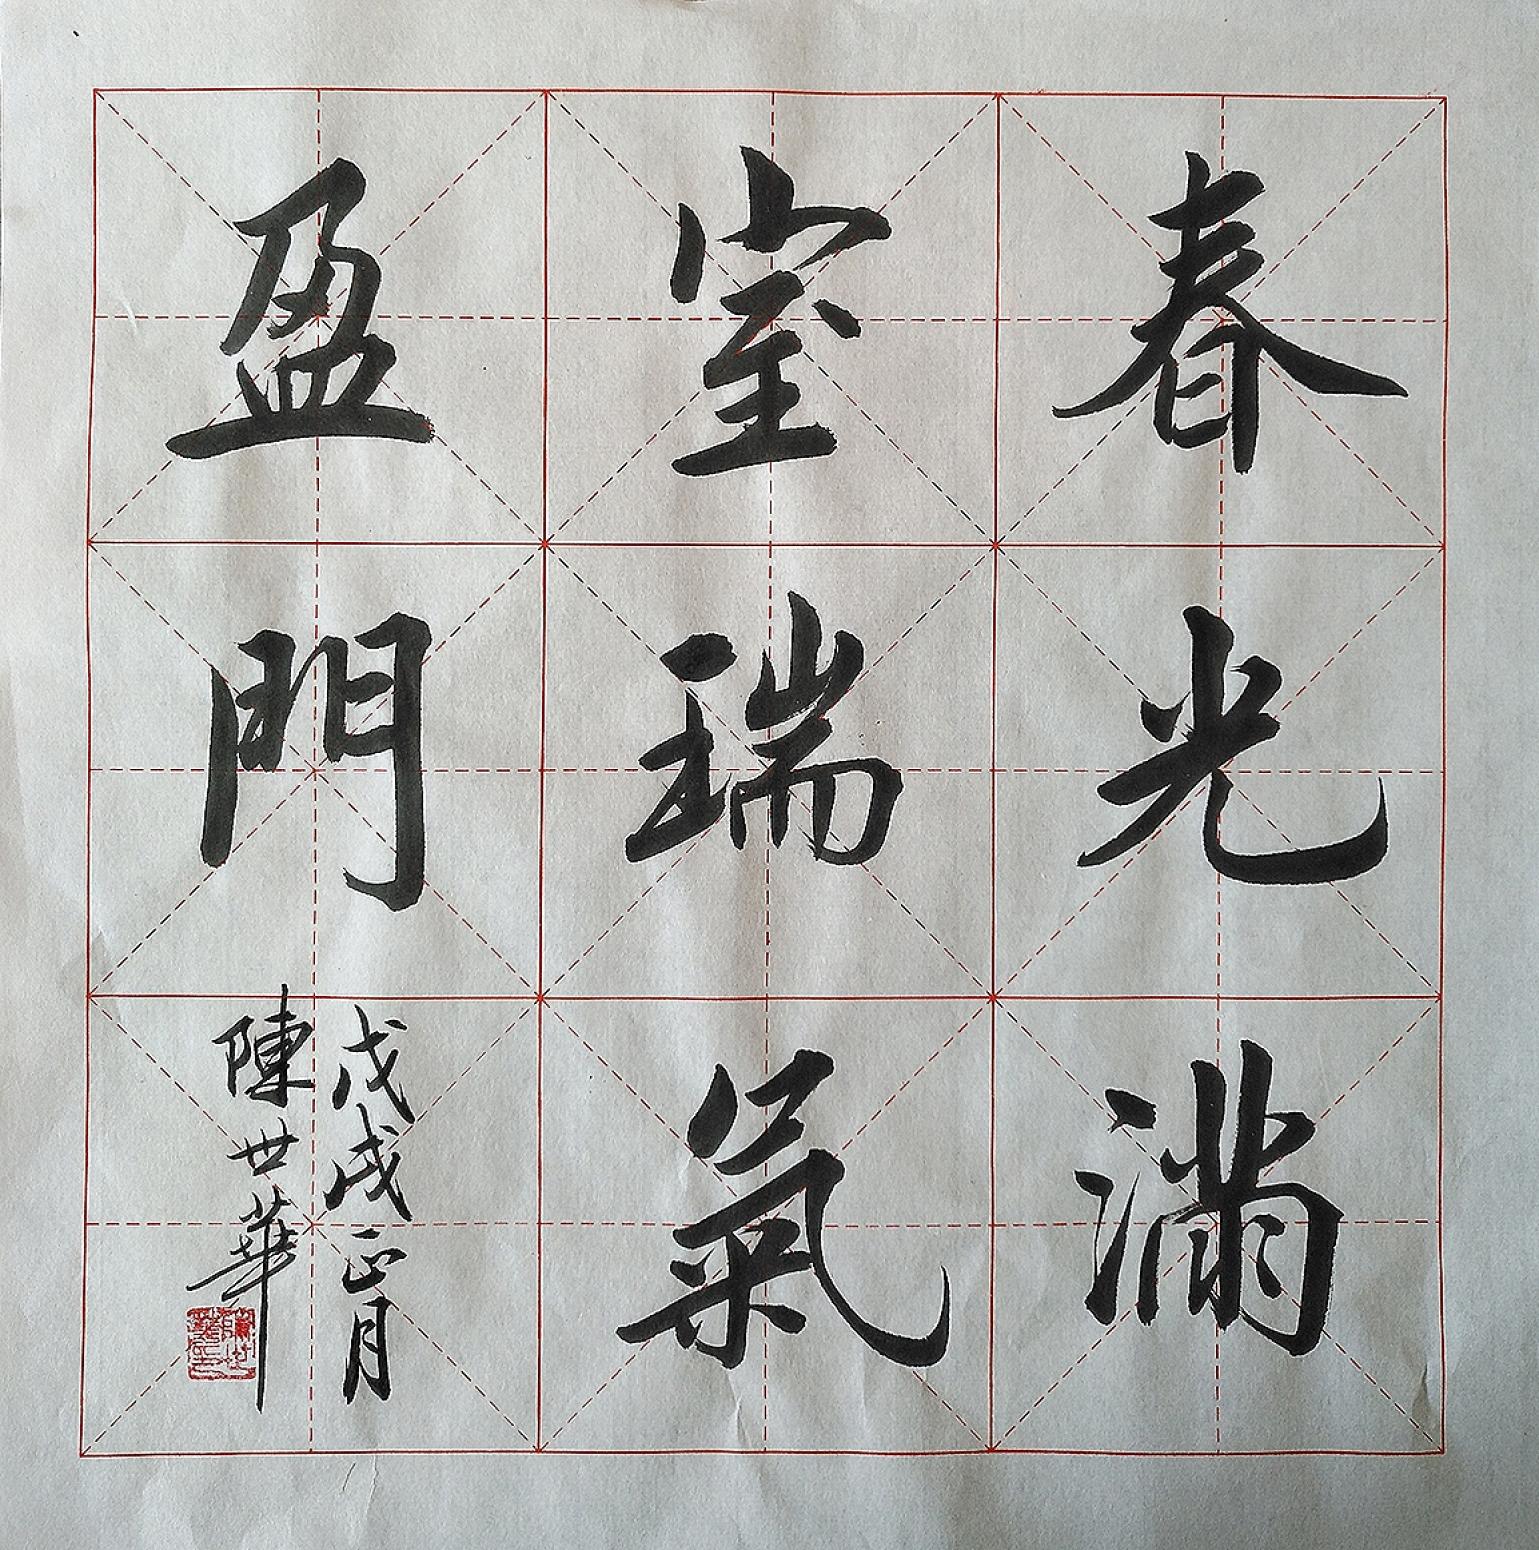 春光滿
室瑞氣
盈門
戊戌正月
陳世華